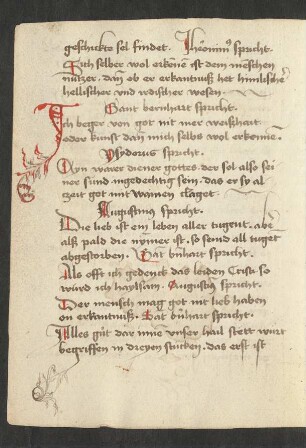 geschickte sel findet. Jheronimus spricht.
Sich selber wol erkenē ist dem mēschen
nutzer. dañ ob er erkantnuß het himlischer
hellischer und yrdischer wesen.
Sant bernhart spricht.
Ich beger von got nit mer weißhait
oder kunst dañ mich selbs wol erkennē
Ysydorus spricht.
Ayn warer diener gottes der sol also sei
ner sünd ingedechtig sein. das er sy al
zeit got mit wainen claget.
Augustinus spricht.
Die lieb ist ein leben aller tugent. aber
alß pald die nymer ist. so seind all tuget
abgestorben. Sāt bn̄hart spricht.
Als offt ich gedenck das leiden Cristi so
würd ich haylsam. Augustiūs spricht.
Der mensch mag got nit lieb haben
on erkantnuß. Sāt bn̄hart spricht.
Alles gůt dar inn unser hail stett wirt
begriffen in dreyen stucken. das erst ist